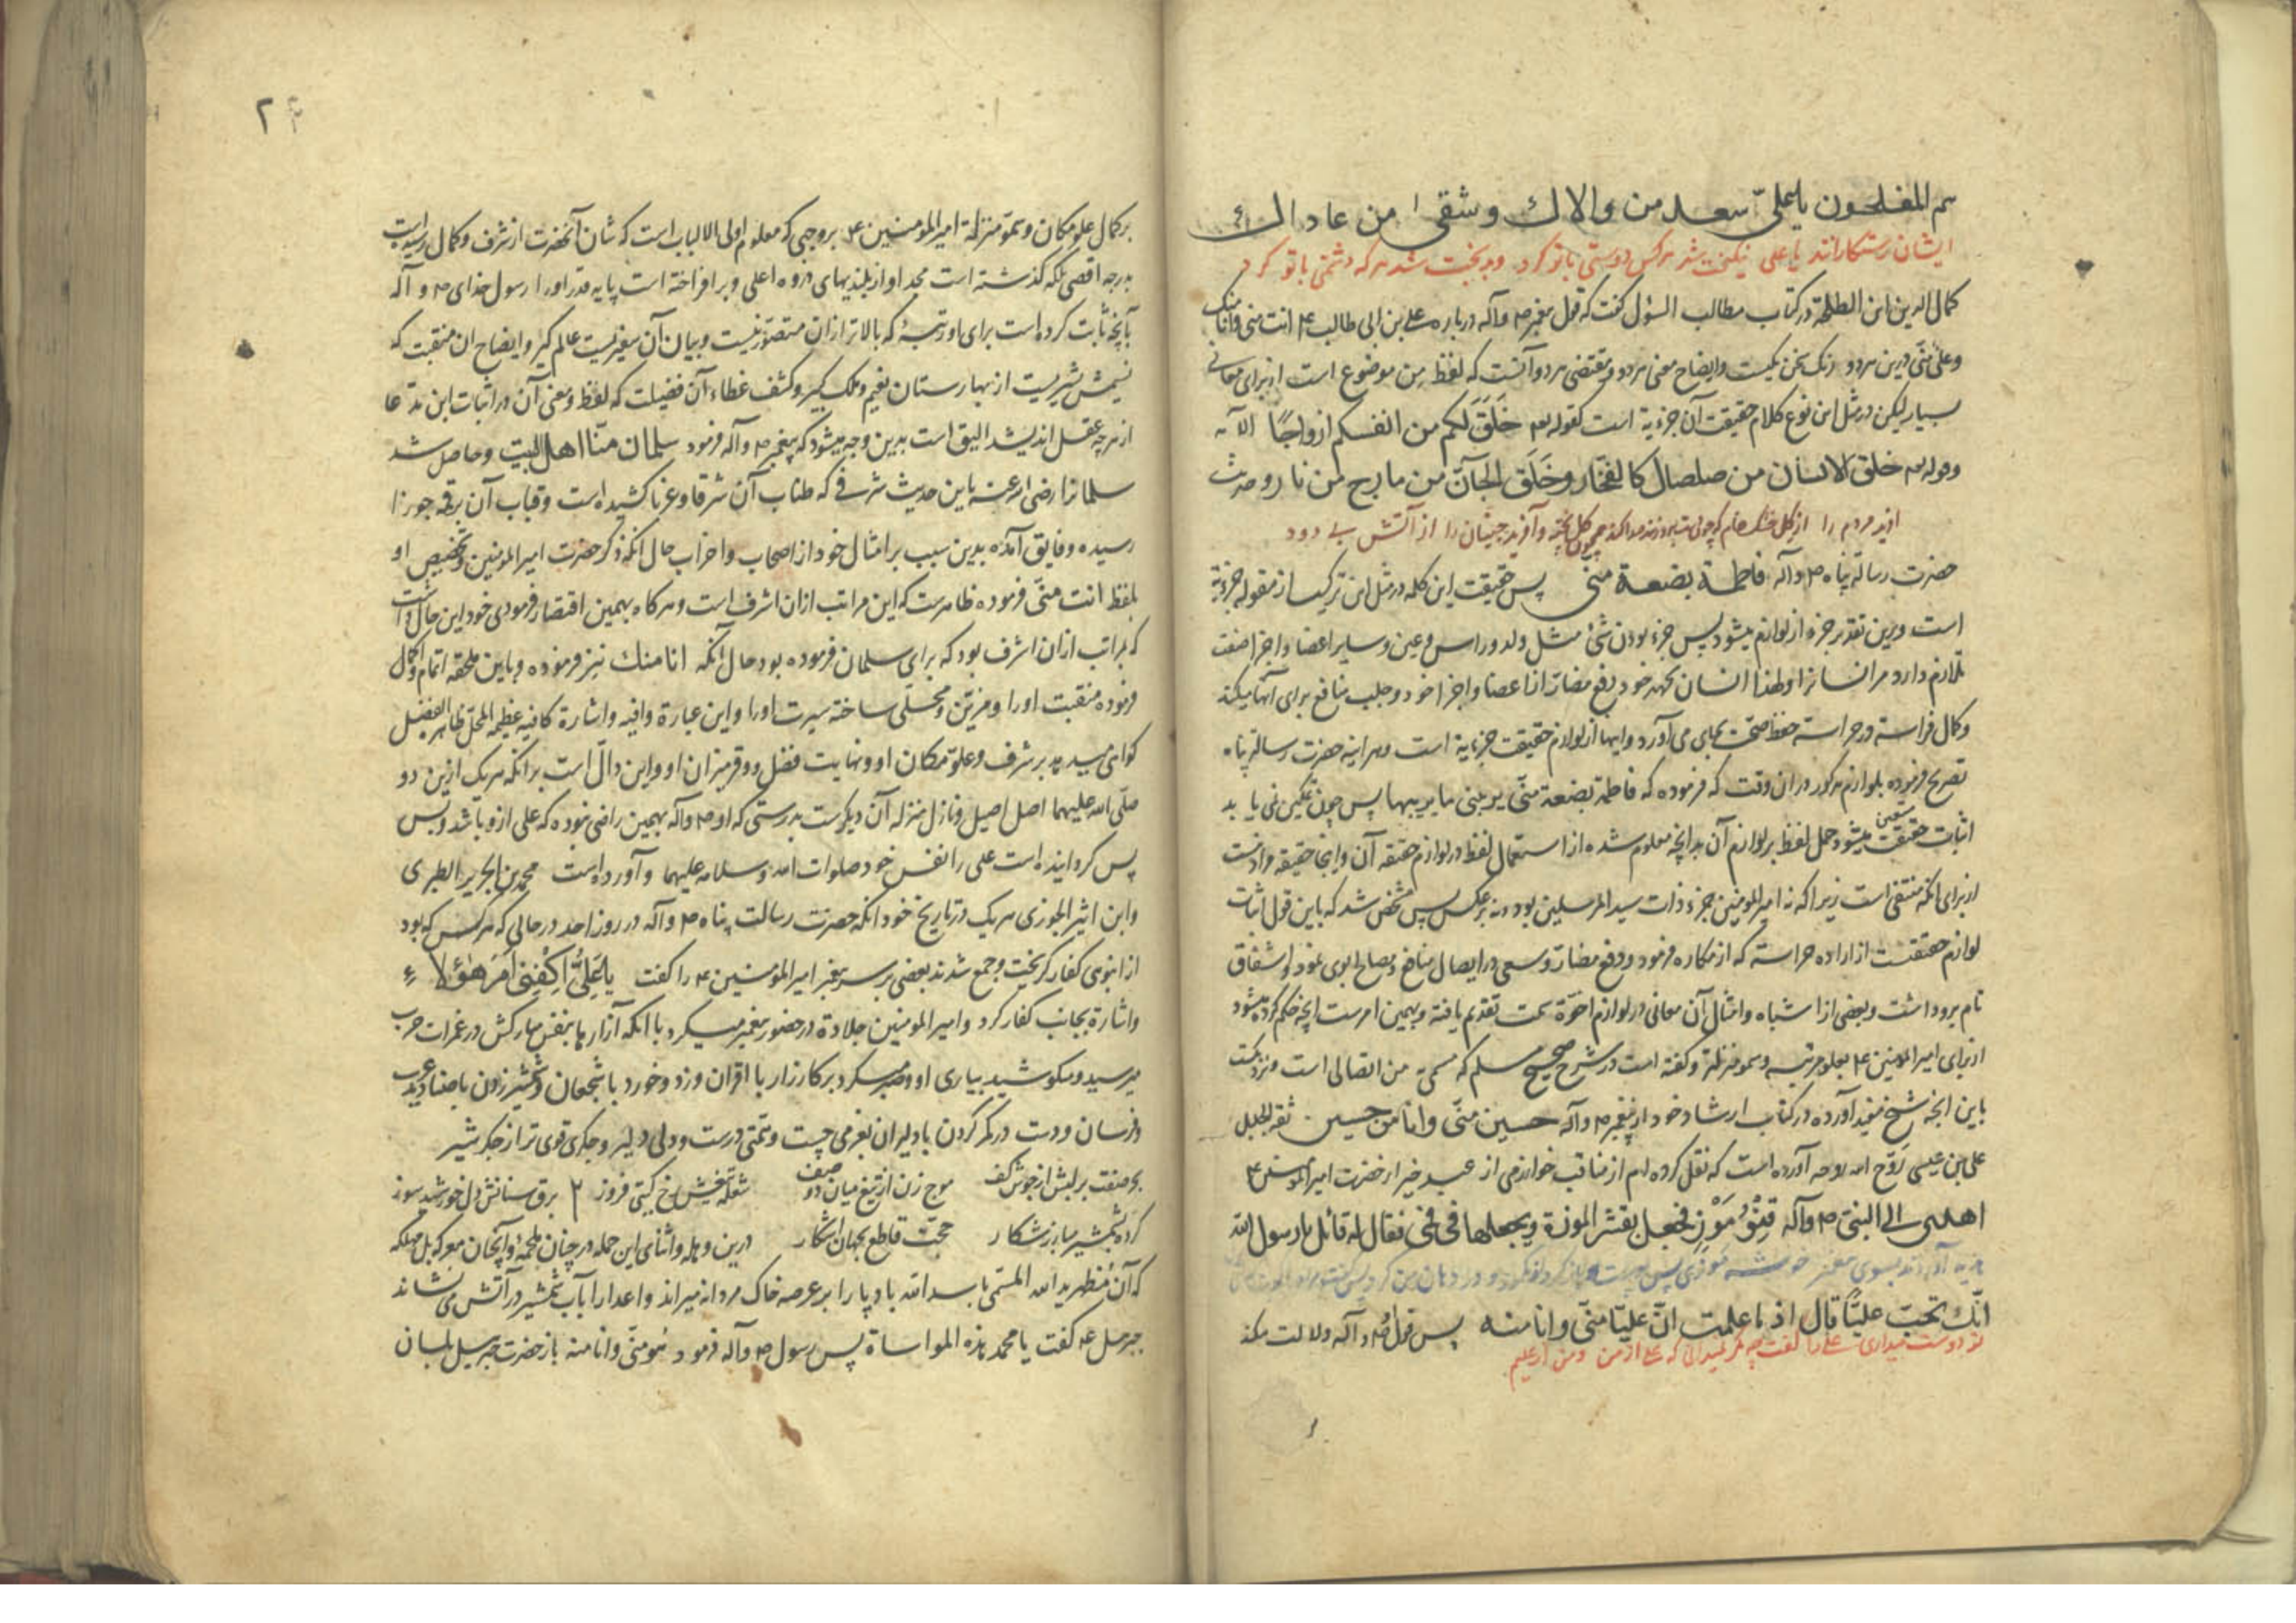 هم المفلحون یا علیّ سعد من والاك وشقی من عاداك
ایشان رستکارانند یا علی نیکبخت شد هر کس دوستی با تو کرد و بدبخت شد هر که دشمنی با تو کرد
کمال الدین ابن الطلحه در کتاب مطالب السؤل گفت که قول پیغمبر ص وآله درباره علی بن ابی طالب ع انت منی وانا منک
وعلی منّی درین هر دو یکیست وایضاح معنی هر دو ومقتضی هر دو آنست که لفظ من موضوع است از برای معانی
بسیار لیکن در مثل این نوع کلام حقیقت آن جزئیة است کقوله تعه خَلَقَ لکم من انفسکم ازواجًا الآیه
وقوله تعه خلق الانسان من صلصال کالفخّار وخَلَق الجآنّ من مارج من نار وحدیث
مردم را از کل خشک خام که چون کل پخته وآفرید جنیان را از آتش بی دود
حضرت رسالة پناه ص وآله فاطمة بضعة منّی پس حقیقت این کلمه در مثل این ترکیب از مقوله جزئیة
است وبرین تقدیر جزء از لوازم میشود پس جزء بودن شئ مثل ولد وراس وعین وسایر اعضا واجزا صفت
تلازم دارد مر انسانرا ولهذا انسان بجهد خود دفع مضارّ از اعضا واجزا خود وجلب منافع برای آنها میکند
وکمال فراسة وحراسة حفظ صحّت بجای می آورد واینها از لوازم حقیقت جزئیة است وهر آینه حضرت رسالة پناه
تصریح فرموده بلوازم مذکور در ان وقت که فرموده که فاطمة بضعة منّی یریبنی ما یریبها پس چون تمکین نمی یابد
اثبات حقیقت میشود حمل لفظ بر لوازم آن بدانچه معلوم شده از استعمال لفظ در لوازم حقیقه آن واینجا حقیقه مراد نیست
از برای آنکه منتفی است زیرا که نه امیر المومنین جزء ذات سید المرسلین بود ونه برعکس پس مشخص شد که باین قول اثبات
لوازم حقیقتست از اراده حراسة که از مکاره فرمود ودفع مضارّ وسعی در ایصال منافع ومصالح ابوی نمود واشفاق
تام برو داشت وبعضی از اشباه وامثال آن معانی در لوازم اخوّة سمت تقدیم یافته وبهمین امرست آنچه حکم کرده میشود
از برای امیر المومنین ع بعلو مرتبه وسمو منزلة وکفته است در شرح صحیح مسلم که من اتصالی است
باین آنچه شیخ مفید آورده در کتاب ارشاد خود از پیغمبر ص وآله حسین منّی وانا من حسین ثقة الجلیل
علی بن عیسی رَوّح الله روحه آورده است که نقل کرده ام از مناقب خوارزمی از عبد خیر از حضرت امیر المومنین ع
اهدی الی النبی ص وآله قِنْوُ مَوْز فجعل یقشر الموزة ویجعلها فی فمی فقال له قائل یا رسول الله
هدیه آوردند بسوی پیغمبر خوشه موزی پس پوست
انّك تحبّ علیًّا قال او ما علمت انّ علیّا منّی وانا منه پس قول او ص وآله دلالت میکند
تو دوست میداری علی را گفت چه مگر نمیدانی که علی از من ومن از علیم
۲۴
بر کمال علوّ مکان وسموّ منزلة امیر المومنین ع بر وجهی که معلوم اولی الالباب است که شان آنحضرت از شرف وکمال رسیده است
بدرجه اقصی بلکه گذشته است مجد او از بلندیهای ذروه اعلی وبر افراخته است پایه قدر اورا رسول خدای ص وآله
بآنچه ثابت کرده است برای او رتبهٔ که بالاتر از ان متصوّر نیست وبیان آن عالم کیر وایضاح ان منقبت که
نسیمش از بهارستان نعیم وملک کبیر وکشف غطاء آن فضیلت که لفظ ومعنی آن در اثبات این مدّعا
از هر چه عقل اندیشد الیق است بدین وجه میشود که پیغمبر ص وآله فرمود سلمان منّا اهل البیت وحاصل شد
سلمانرا رضی الله عنه باین حدیث شرفی که طناب آن شرقا وغربا کشیده است وقباب آن برقبه جوزا
رسیده وفایق آمده بدین سبب بر امثال خود از اصحاب واحزاب حال آنکه ذکر حضرت امیر المومنین وتخصیص او
بلفظ انت منّی فرموده ظاهرست که این مراتب ازان اشرف است وهر کاه بهمین اقتصار فرمودی خود این حال داشت
که بمراتب ازان اشرف بود که برای سلمان فرموده بود حال آنکه انا منك نیز فرموده وباین ملحقه اتمام واکمال
فرموده منقبت اورا ومزیّن ومحلّی ساخته سیرت اورا واین عبارة وافیه واشارة کافیه عظیمة المحل ظاهر الفضل
کواهی میدهد بر شرف وعلوّ مکان او ونهایت فضل ووقر میزان او واین دالّ است بر آنکه هر یک ازین دو
صلّی الله علیهما اصل اصیل ونازل منزله آن دیگرست بدرستی که او ص وآله بهمین راضی نبوده که علی ازو باشد وبس
پس کردانیده است علی را نفس خود صلوات الله وسلامه علیهما وآورده است محمد بن الجریر الطبری
وابن اثیر الجوزی هر یک در تاریخ خود آنکه حضرت رسالت پناه ص وآله در روز احد در حالی که هر کس که بود
از انبوهی کفار کریخت وجمع شدند بعضی بر سر پیغمبر امیر المومنین ع را کفت یا عَلِیُّ اکْفِنِی اَمرَ هٰؤُلاء
واشارة بجانب کفار کرد وامیر المومنین جلادة در حضور پیغمبر میکرد با آنکه آزارها بنفس مبارکش در غمرات حرب
میرسید ومیکوشید بیاری او وصبر میکرد بر کارزار با اقران وزد وخورد با شجعان وشمشیر زدن با صنادید عرب
وفرسان ودست در کمر کردن با دلیران بعزمی چست وهمّتی درست ودلی دلیر وجکری قوی تر از جکر شیر
بحر صفت بر لبش از جوش کف موج زن از تیغ میان دو صف شعله تیغش رخ کیتی فروز ۲ برق سنانش دل خورشید سوز
کرده بشمشیر مبارز شکار حجّت قاطع بجهان آشکار درین وهله واثنای این حمله در چنان ملحمهٔ وآنچنان معرکه بل مهلکه
که آن مظهر ید الله المسمّی باسد الله بادپا را بر عرصه خاک مردانه میراند واعدارا بآب شمشیر در آتش می نشاند
جبرئیل ع کفت یا محمد هذه المواساة پس رسول ص وآله فرمود هُو منّی وانا منه باز حضرت جبرئیل بلسان